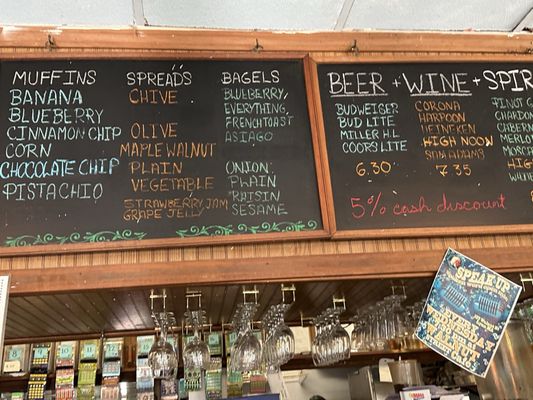 MUFFINS
BANANA
BLUEBERRY
CINNAMON CHIP
CORN
CHOCOLATE CHIP
PISTACHIO
SPREADS
CHIVE
OLIVE
MAPLE WALNUT
PLAIN
VEGETABLE
STRAWBERRY JAM
GRAPE JELLY
BAGELS
BLUEBERRY,
EVERYTHING,
FRENCH TOAST
ASIAGO
ONION
PLAIN
RAISIN
SESAME
BEER + WINE + SPIR
BUDWEISER
BUD LITE
MILLER H.L
COORS LITE
6.30
CORONA
HARPOON
HEINEKEN
HIGH NOON
SAM ADAMS
7.35
PINOT G
CHARDON
CABERN
MERLOT
MOSCA
HIGH
5% cash discount
SPEAK UP